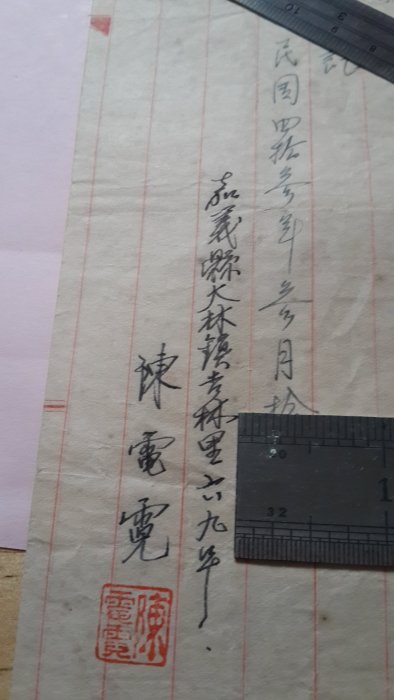 民國四拾叁年叁月拾
嘉義縣大林鎮吉林里六九号
陳電霓
陳電霓
10
9
8
32
1